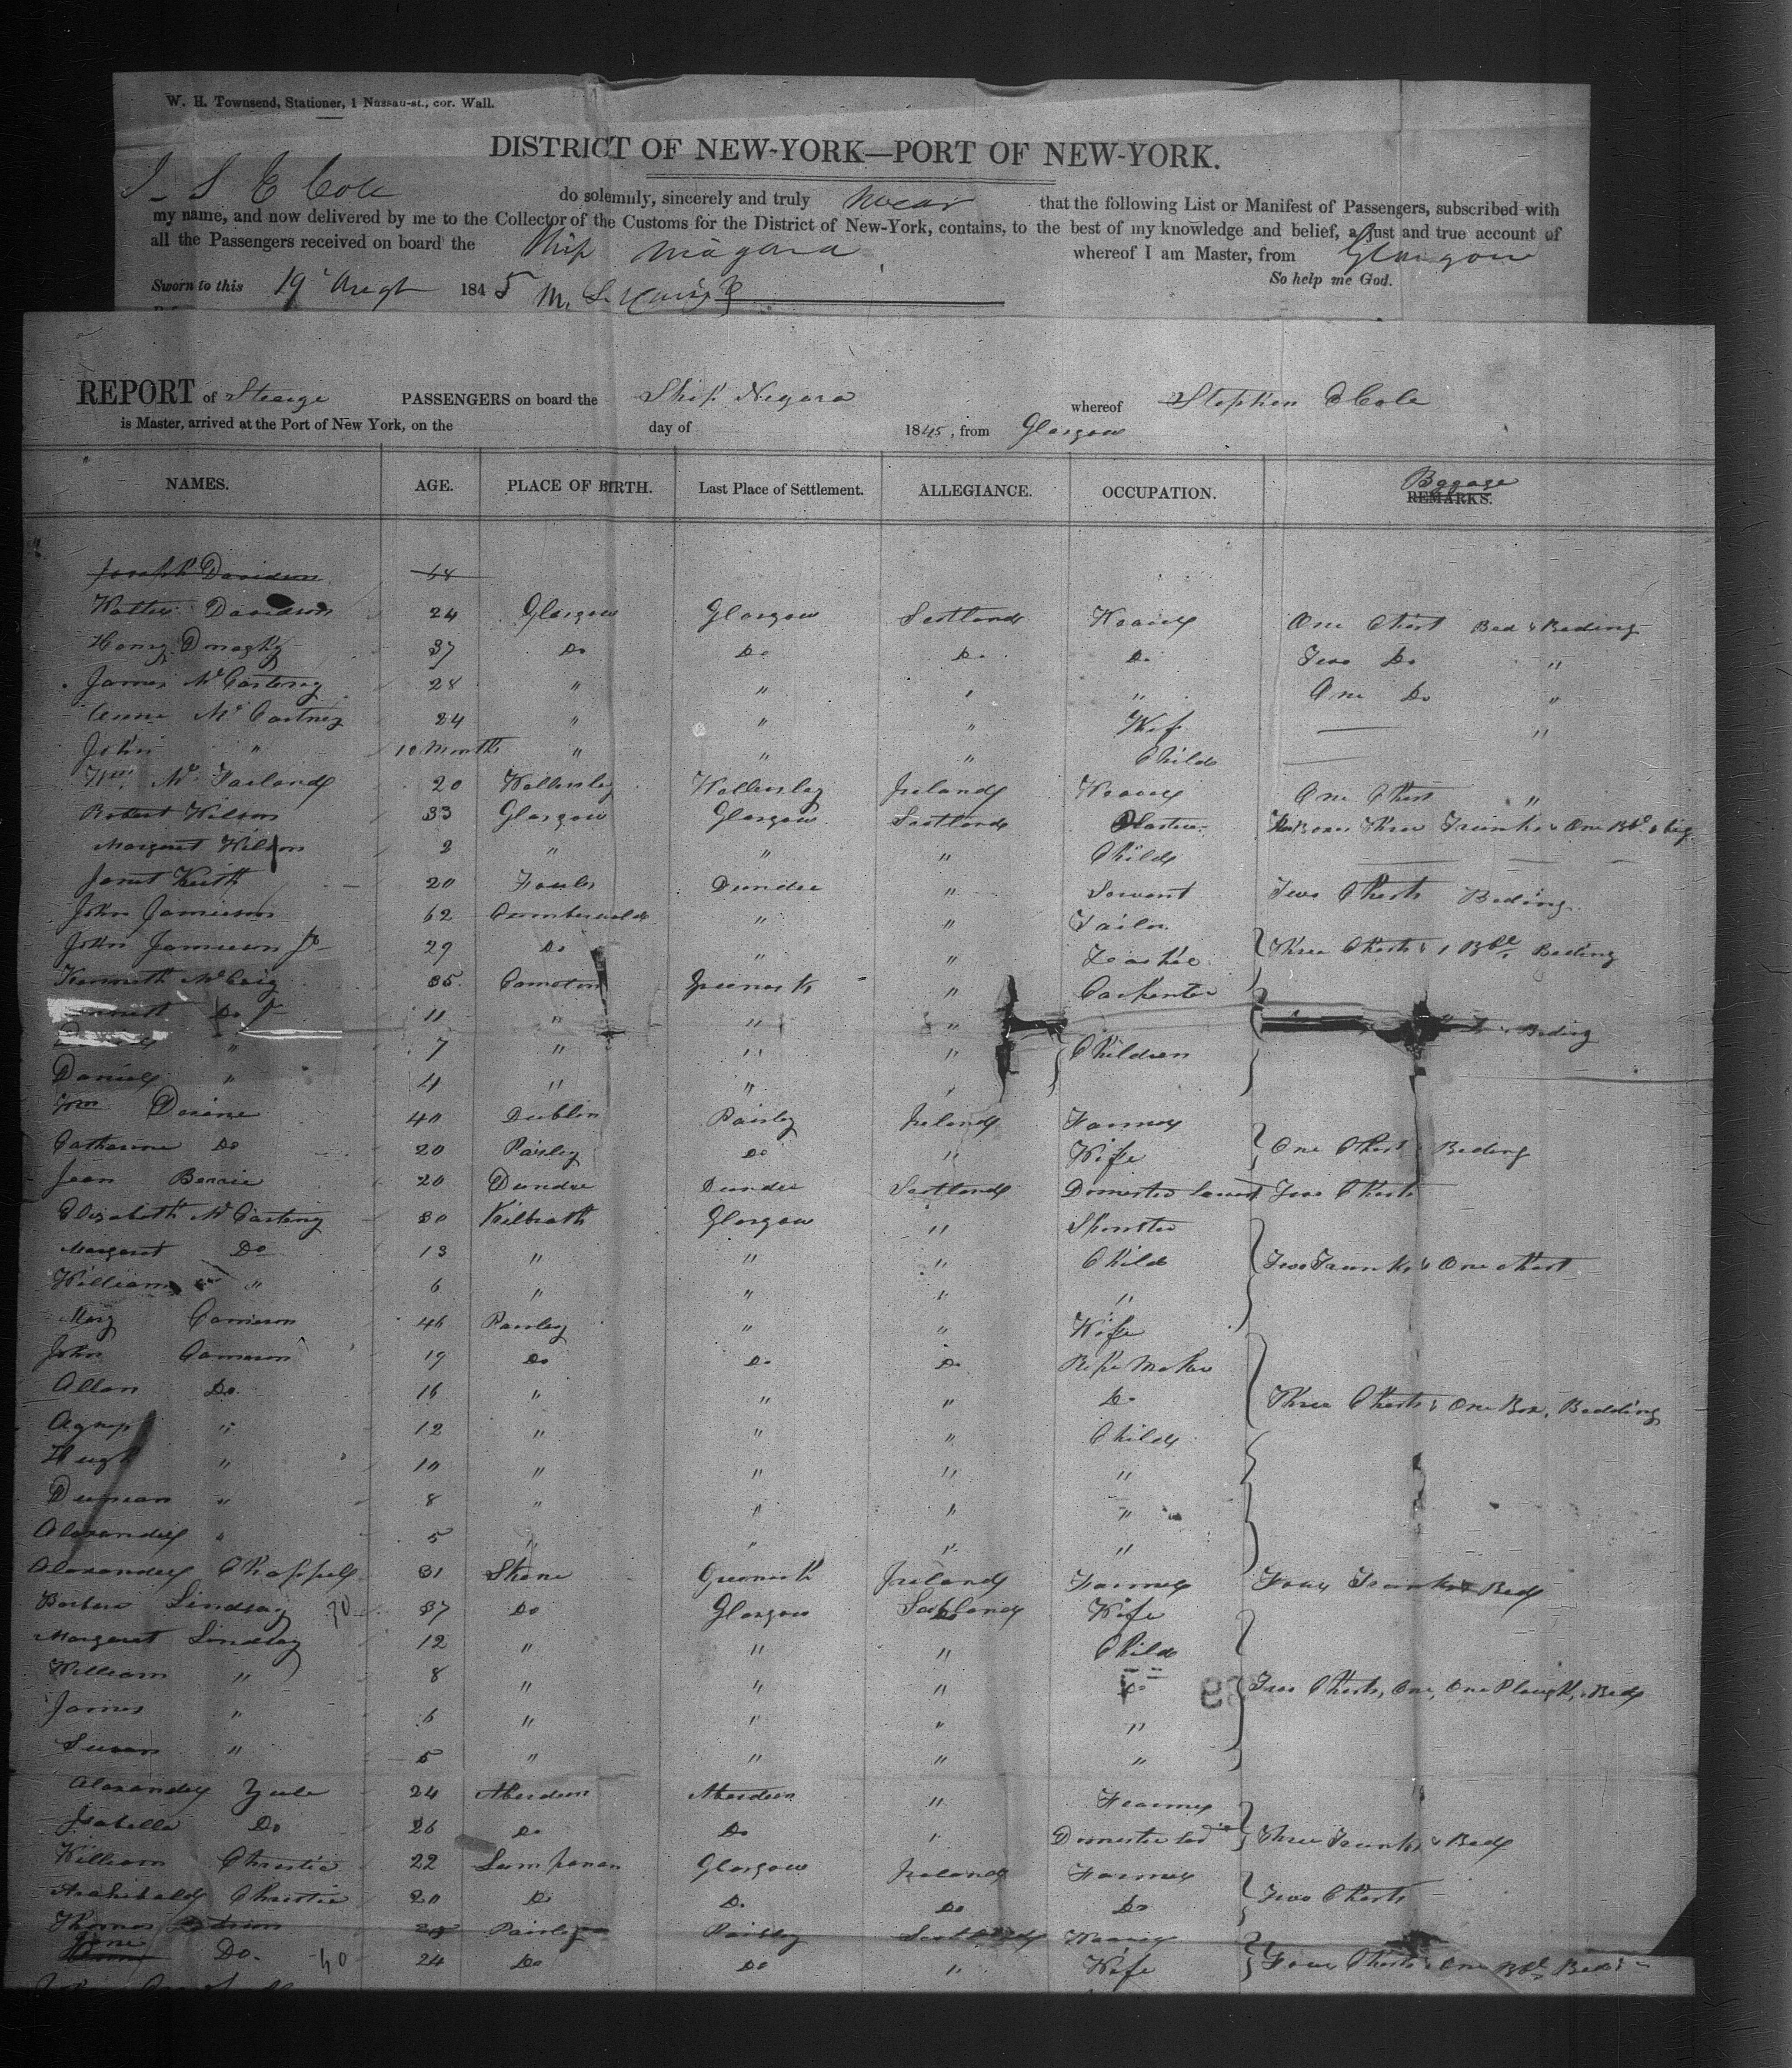 W. H. Townsend, Stationer, 1 Nassau-st., cor. Wall.
DISTRICT OF NEW-YORK—PORT OF NEW-YORK.
I S E Cole do solemnly, sincerely and truly swear that the following List or Manifest of Passengers, subscribed with
my name, and now delivered by me to the Collector of the Customs for the District of New-York, contains, to the best of my knowledge and belief, a just and true account of
all the Passengers received on board the Ship Niagara whereof I am Master, from Glasgow
Sworn to this 19 Augt 1845 So help me God.
REPORT of Steerage PASSENGERS on board the Ship Negara whereof Stephen E Cole
is Master, arrived at the Port of New York, on the day of 1845, from Glasgow
NAMES. AGE. PLACE OF BIRTH. Last Place of Settlement. ALLEGIANCE. OCCUPATION. Bagage REMARKS.
Joseph Davidson 64
Walter Davidson 24 Glasgow Glasgow Scotland Weaver One Chest Bed & Beding
Henry 37 Do Do Do Do Two Do "
James McCarteney 28 " " " " One Do "
Anne McCartney 24 " " " Wife — "
John " 10 Months " " " Child —
Wm McFarland 20 Ireland Weaver One Chest "
Robert Wilson 33 Glasgow Glasgow Scotland Boxes Three Trunks & One
Margaret Wilson 2 " " " Child —
Janet Keith 20 Dundee " Servant Two Chests Beding
John Jamieson 62 " " Tailor
John Jamieson Jr 29 Do " " Three Chests & 1 Bbl Beding
Kenneth McCaig 35 Greenock " Carpenter
Do Jr 11 " " " Beding
" 7 " " " Children
Daniel " 4 " " "
Wm 40 Dublin Paisley Ireland Farmer
Catharine Do 20 Paisley Do " Wife One Chest & Beding
Jean 20 Dundee Dundee Scotland Domestic Servant Two Chests
Elizabeth McCarteny 30 Glasgow " Spinster
Margaret Do 13 " " " Child Two Trunks & One Chest
William " 6 " " " "
Mary Cameron 46 Paisley " " Wife
John Cameron 19 Do Do Do Maker
Allan Do 16 " " " Do Three Chests & One Box, Bedding
Agness " 12 " " " Child
Hugh " 10 " " " "
Duncan " 8 " " " "
Alexander " 5 " " " "
Alexander Chappel 31 Greenock Ireland Farmer Four Trunks & Bed
Barbara Lindsay 30 37 Do Glasgow Scotland Wife
Margaret Lindsay 12 " " " Child
William " 8 " " " Do Two Chests, One, One Plough, Bed
James " 6 " " " "
Susan " 5 " " " "
Alexander Yule 24 Aberdeen Aberdeen " Farmer
Isabella Do 26 Do Do " Domestic Three Trunks & Bed
William Christie 22 Glasgow Ireland Farmer
Archibald Christie 20 Do Do Do Do Two Chests
Thomas Paisley Paisley Scotland Weaver
Jane Do 40 24 Do Do " Wife Four Chests & One Bbl